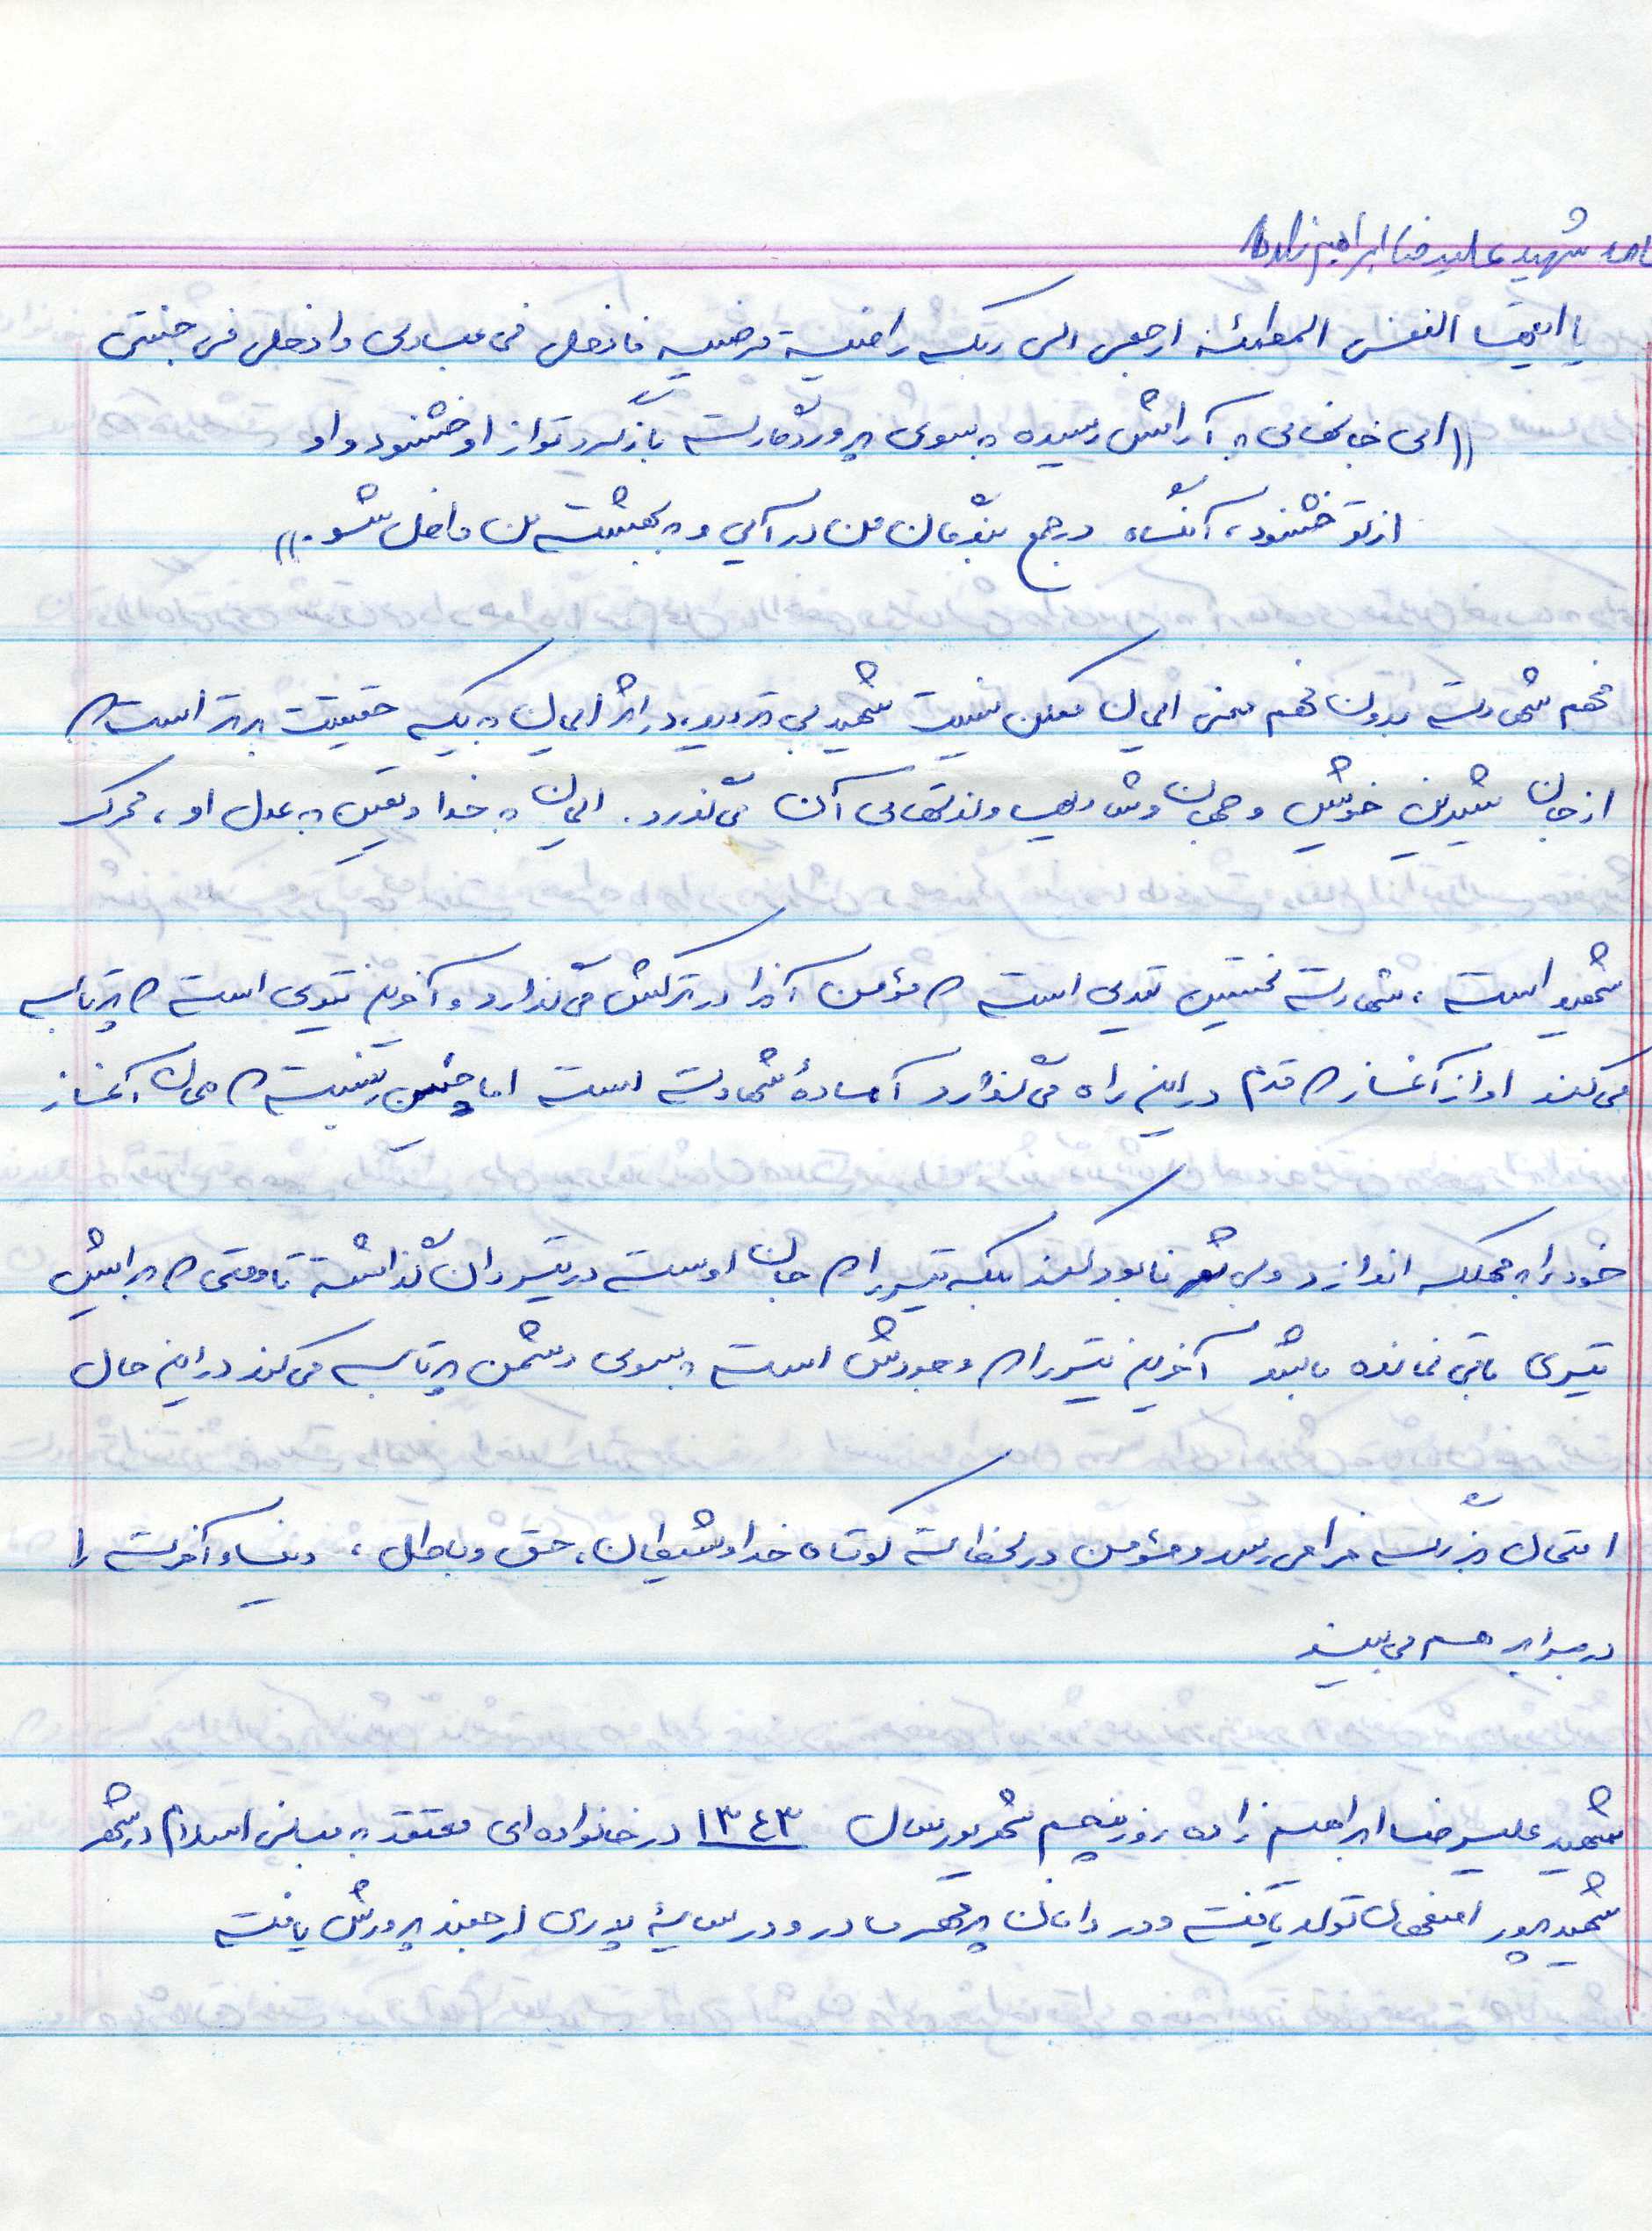 شهید علیرضا ابراهیم زاده
یا ایتها النفس المطمئنه ارجعی الی ربک راضیة مرضیه فادخلی فی عبادی وادخلی فی جنتی
((ای جانهای به آرامش رسیده به سوی پروردگارت بازگرد تو از او خشنود و او
از تو خشنود، آنگاه در جمع بندگان من در آی و به بهشت من داخل شو.))
فهم شهادت بدون فهم معنی ایمان ممکن نیست شهید بی تردید، در اثر ایمان به یک حقیقت برتر است که
از جان شیرین خویش و جهان و شادیها و لذتهای آن می گذرد. ایمان به خدا و یقین به عدل او، محرک
شهید است، شهادت نخستین تیری است که مؤمن آنرا در ترکش می گذارد و آخرین تیری است که پرتاب
می کند او از آغاز که قدم در این راه می گذارد آماده شهادت است اما چنین نیست که همان آغاز
خود را به مهلکه اندازد و نابود کند بلکه تیر را که جان اوست در تیردان گذاشته تا وقتی که برایش
تیری باقی نمانده باشد آخرین تیر را که وجودش است به سوی دشمن پرتاب می کند در این حال
امتحان بزرگ فرا می رسد و مؤمن در لحظات کوتاه خدا و شیطان، حق و باطل، دنیا و آخرت را
در برابر هم می بیند
شهید علیرضا ابراهیم زاده روز پنجم شهریور سال ۱۳۴۳ در خانواده ای معتقد به مبانی اسلام در شهر
شهید پرور اصفهان تولد یافت و در دامان پر مهر مادر و در سایهٔ پدری ارجمند پرورش یافت